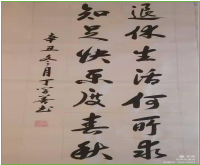 退休生活何所求
知足快乐度春秋
辛丑冬月丁